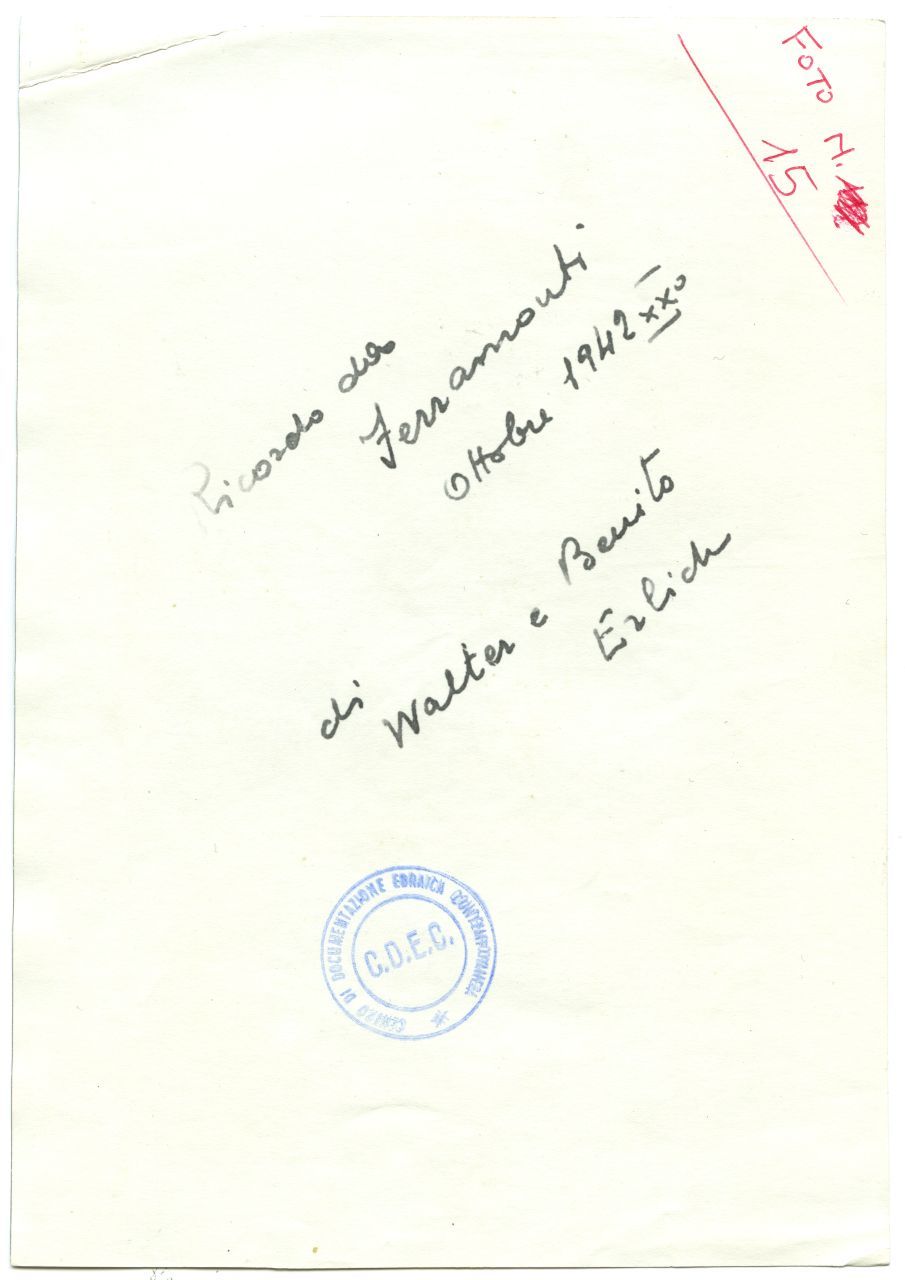 FOTO N.
15
Ricordo da
Ferramonti
Ottobre 1942 XXº
di
Walter e Benito
Erlich
CENTRO DI DOCUMENTAZIONE EBRAICA CONTEMPORANEA
C.D.E.C.